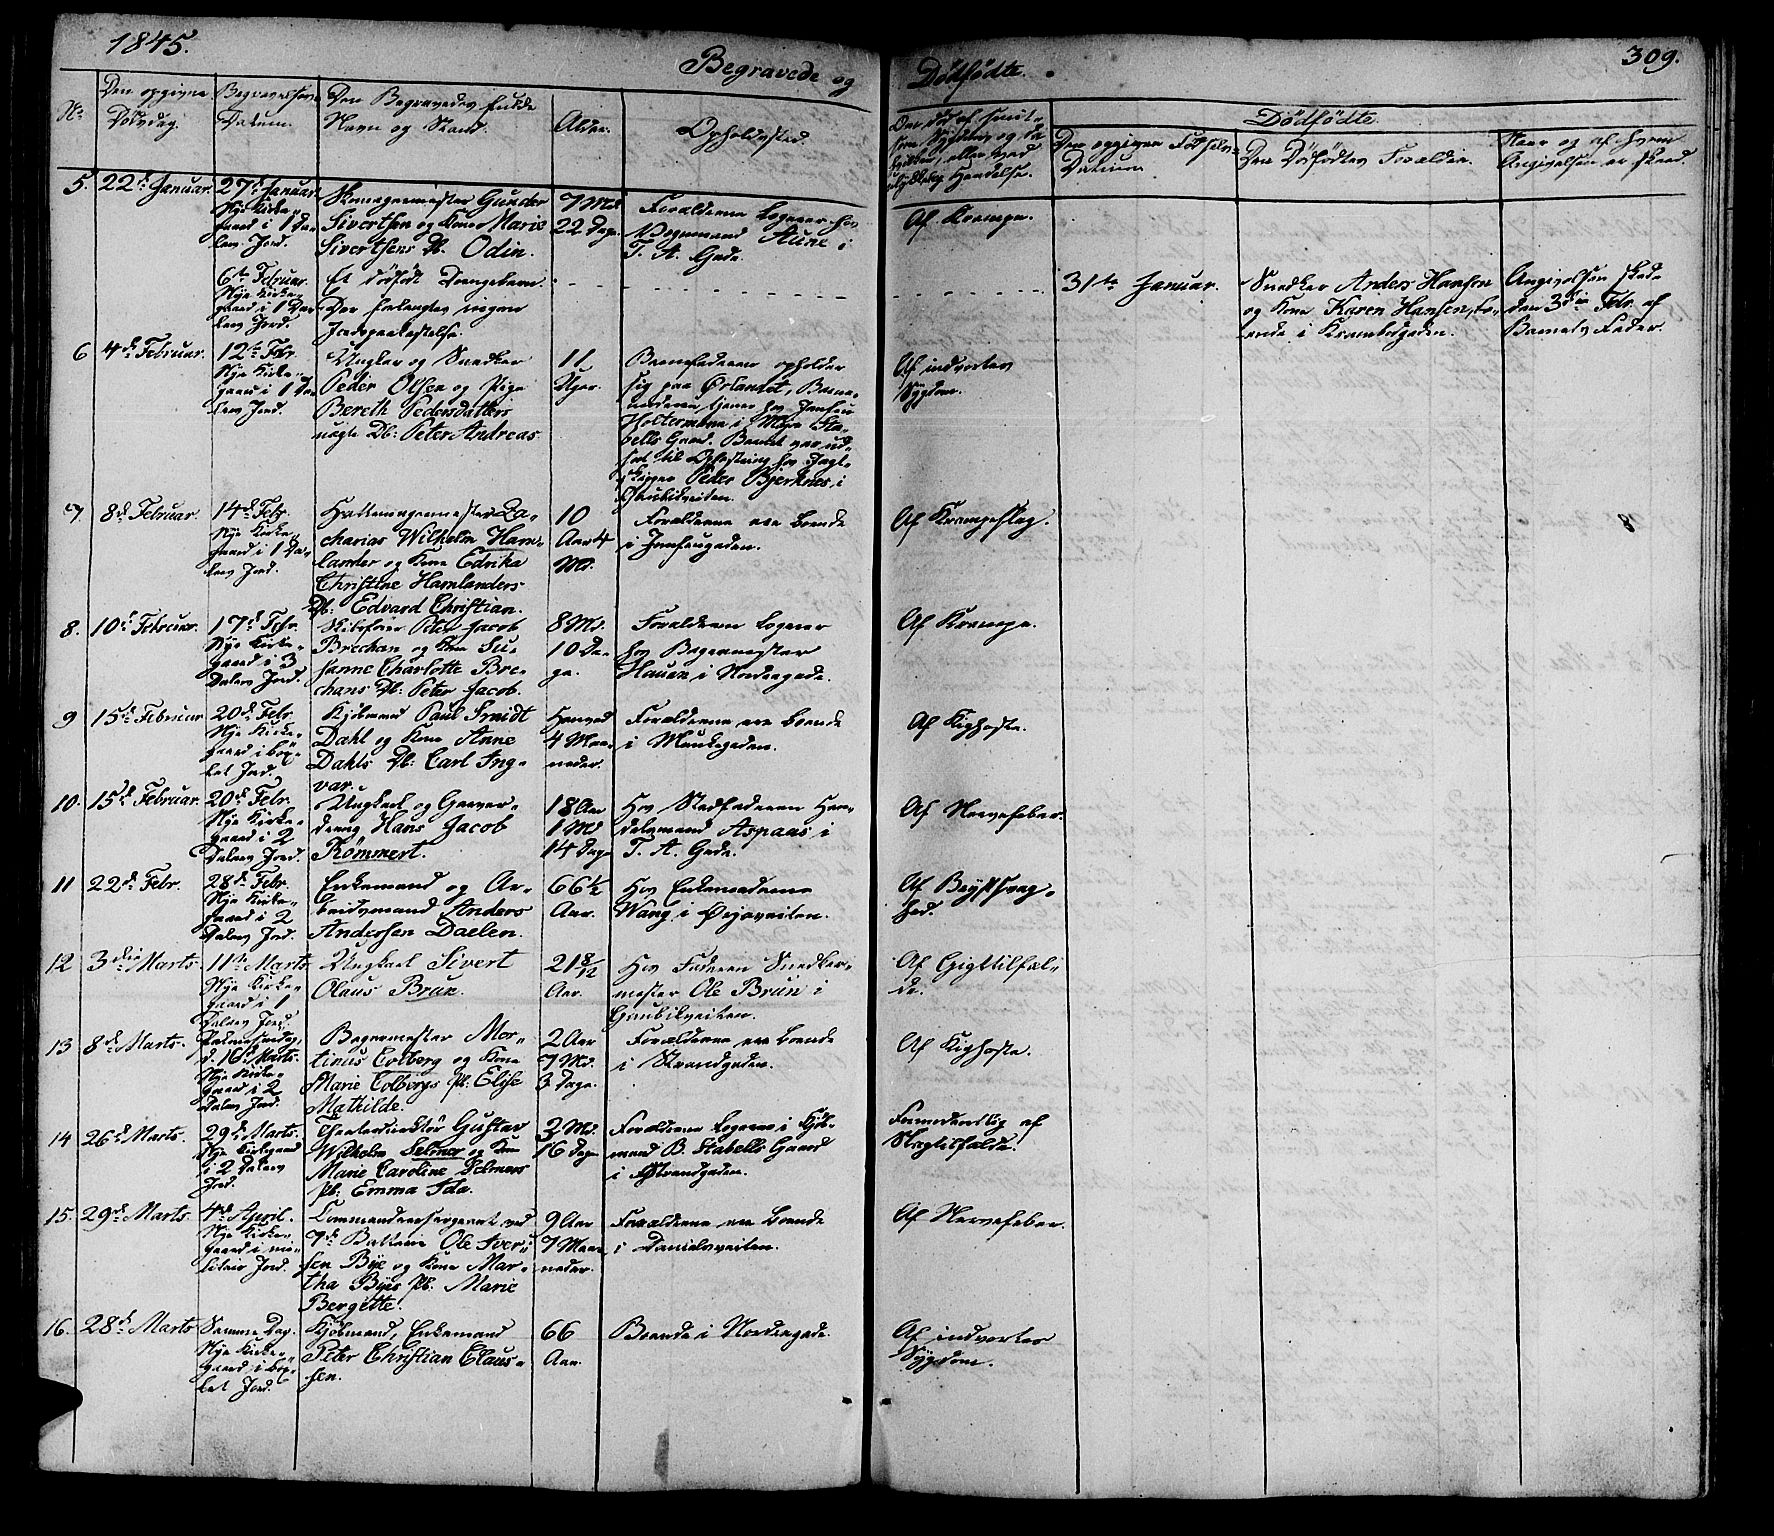 1845.
Begravede og
Dödfödte.
309.
No
Den opgivne
Dödsdag.
Begravelsens
Datum.
Den Begravedes fulde
Navn og Stand.
Alder.
Opholdssted.
Dödfödte.
Den opgivne Fødsels-
Datum.
Den Dödfödtes Forældre.
Naar og af hvem
Angivelsen er skeed
5.
22de Januar.
27de Januar
Nye Kirke-
gaard i 1 Da-
lers Jord.
Skomagermester Gunder
Sivertsen og Kone Marie
Sivertsens Db. Odin.
7 Md.
22 Dage.
Forældrene logerer hos
Vognmand Aune i
T. A. Gade.
Af Krampe.
6te Februar.
Nye Kirke-
gaard i 1 Da-
lers Jord.
Et dödfödt Drengebarn.
Der forlangtes ingen
Jordpaakastelse.
31te Januar.
Snedker Anders Hansen
og Kone Karen Hansen, bo-
ende i Krambodgaden.
Angivelsen skede
den 3die Febr. af
Barnets Fader.
6
4de Februar.
12te Febr.
Nye Kirke-
gaard i 1 Da-
lers Jord.
Ungkarl og Snedker
Peder Olsen og Pige
Bereth Pedersdatters
uægte Db: Peter Andreas.
11
Uger.
Barnefaderen opholder
sig paa Örlandet, Barne-
moderen tjener hos Jomfru
Holtermann i Major Sta-
bells Gaard. Barnet var ud-
sat til Opfostring hos Jagt-
skipper Peder Bjerknes, i
Gaubækveiten.
Af indvortes
Sygdom.
7
8de Februar.
14de Febr.
Nye Kirke-
gaard i 1 Da-
lers Jord.
Hattemagermester Za-
charias Wilhelm Ham-
lander og Kone Edvika
Christine Hamlanders
Db: Edvard Christian.
10
Aar 4
Md.
Forældrene ere boende
i Jomfrugaden.
Af Krampeslag.
8
8.
10de Februar.
17de Febr.
Nye Kirke-
gaard i 3
Dalers Jord.
Skibsförer Peter Jacob
Brechan og Kone Su-
sanne Charlotte Bre-
chans Db: Peter Jacob.
8 Md.
10 Da-
ge.
Forældrene logerer
hos Bagermester
Hauen i Nordregade.
Af Krampe.
9
15de Februar
20de Febr.
Nye Kirke-
gaard i kjö-
bet Jord.
Kjöbmand Paul Smidt
Dahl og Kone Anne
Dahls Db: Carl Ing-
var.
Henved
4 Maa-
neder.
Forældrene ere boende
i Munkegaden.
Af Kighoste.
10.
15de Februar.
20de Febr.
Nye Kirke-
gaard i 2
Dalers Jord.
Ungkarl og Garver-
dreng, Hans Jacob
Römmert.
18 Aar
1 Md
14 Dage
Hos Stedfaderen Han-
delsmand Aspaas i
T. A. Gade.
Af Nervefeber.
11
22de Febr.
28de Febr.
Nye Kirke-
gaard i 2
Dalers Jord.
Enkemand og Ar-
beidsmand Anders
Andersen Daelen.
66 1/2
Aar.
Hos Enkemadame
Wang i Örjaveiten.
Af Brystsvag-
hed.
12
3die Marts.
11te Marts
Nye Kirke-
gaard i 1
Dalers Jord.
Ungkarl Sivert
Olaus Brun.
21 8/12
Aar.
Hos Faderen Snedker-
mester Ole Brun i
Gaubækveiten.
Af Gigttilfæl-
de.
13
8de Marts.
Palmesöndag,
d. 16de Marts.
Nye Kirke-
gaard i 2
Dalers Jord.
Bagermester Mor-
tinus Colberg og Kone
Marie Colbergs Pb. Elise
Mathilde.
2 Aar
7 Md.
3 Dage.
Forældrene ere boende
i Strandgaden.
Af Kighoste.
14
26de Marts.
29de Marts.
Nye Kirkegaard
i 2 Dalers
Jord.
Theaterdirektör Gustav
Wilhelm Selmer og Kone
Marie Caroline Selmers
Pb: Emma Ida.
3 Md.
16 Dage
Forældrene logerer i Kjöb-
mand B. Stabells Gaard
i Strandgaden.
Formodentlig af
Slagtilfælde.
15.
29de Marts.
4de April.
Nye Kirke-
gaard i mi-
litair Jord.
Commandeersergeant ved
7de Batterie Ole Iver-
sen Bye og Kone Mar-
tha Byes Pb. Marie
Bergitte.
9 Aar
7 Maa-
neder.
Forældrene ere boende
i Danielsveiten.
Af Nervefeber.
16.
28de Marts
Samme Dag.
Nye Kirke-
gaard i kjö-
bet Jord.
Kjöbmand, Enkemand
Peter Christian Claus-
sen.
66
Aar.
Boende i Nordregade.
Af indvortes
Sygdom.